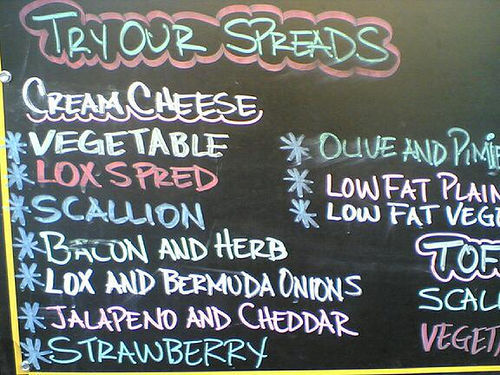 TRY OUR SPREADS
CREAM CHEESE
VEGETABLE
LOX SPRED
SCALLION
BACON AND HERB
LOX AND BERMUDA ONIONS
JALAPENO AND CHEDDAR
STRAWBERRY
OLIVE AND PIMIE
LOW FAT PLAIN
LOW FAT VEGE
TOF
SCAL
VEGET